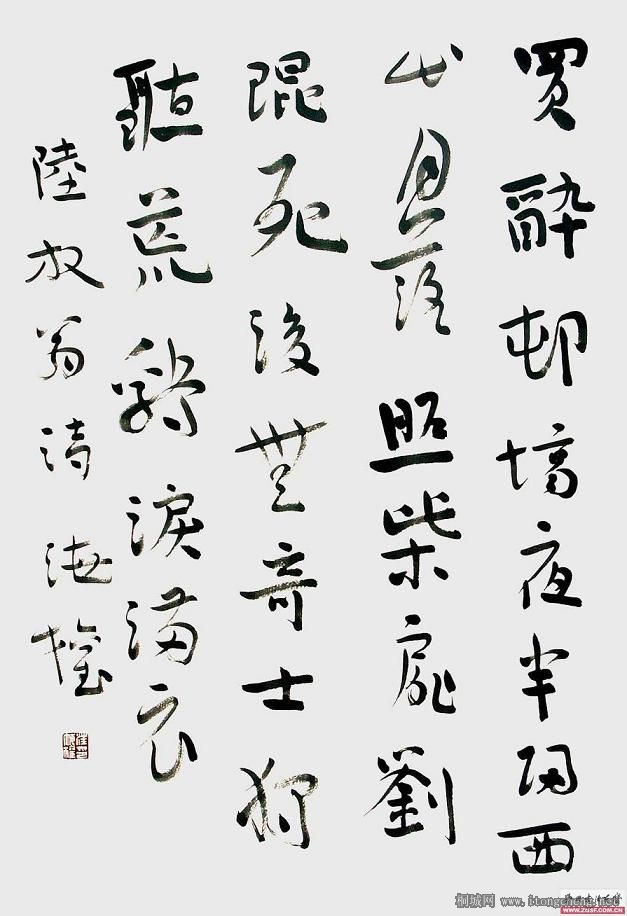 買醉邨場夜半歸西
山月落照柴扉劉
琨死後無奇士獨
聽荒鷄淚滿衣
陸放翁詩 海
桐城网 www.itongcheng.net
WWW.ZUSF.COM.CN